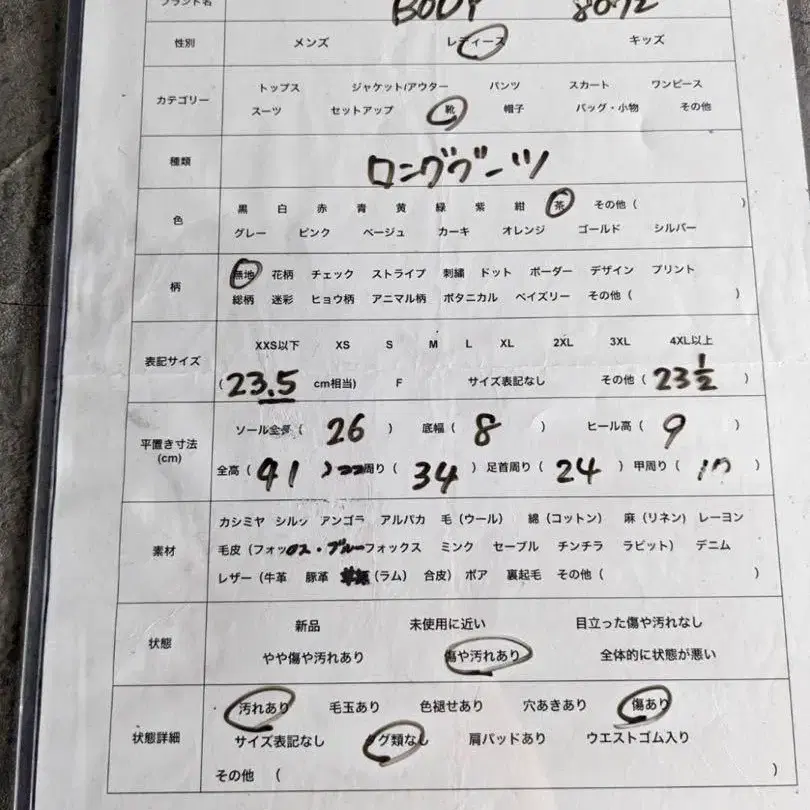 ブランド名 BODY 8072
性別 メンズ レディース キッズ
トップス ジャケット/アウター パンツ スカート ワンピース
カテゴリー
スーツ セットアップ 靴 帽子 バッグ・小物 その他
種類 ロングブーツ
黒 白 赤 青 黄 緑 紫 紺 茶 その他 ( )
色
グレー ピンク ベージュ カーキ オレンジ ゴールド シルバー
無地 花柄 チェック ストライプ 刺繍 ドット ボーダー デザイン プリント
柄
総柄 迷彩 ヒョウ柄 アニマル柄 ボタニカル ペイズリー その他 ( )
XXS以下 XS S M L XL 2XL 3XL 4XL以上
表記サイズ
(23.5 cm相当) F サイズ表記なし その他 ( 23 1/2 )
ソール全長 ( 26 ) 底幅 ( 8 ) ヒール高 ( 9 )
平置き寸法
(cm)
全高 ( 41 ) 周り ( 34 ) 足首周り ( 24 ) 甲周り ( )
カシミヤ シルク アンゴラ アルパカ 毛 (ウール) 綿 (コットン) 麻 (リネン) レーヨン
素材
毛皮 (フォックス・ブルーフォックス ミンク セーブル チンチラ ラビット) デニム
レザー (牛革 豚革 (ラム) 合皮) ボア 裏起毛 その他 ( )
新品 未使用に近い 目立った傷や汚れなし
状態
やや傷や汚れあり 傷や汚れあり 全体的に状態が悪い
汚れあり 毛玉あり 色褪せあり 穴あきあり 傷あり
状態詳細
サイズ表記なし タグ類なし 肩パッドあり ウエストゴム入り
その他 ( )